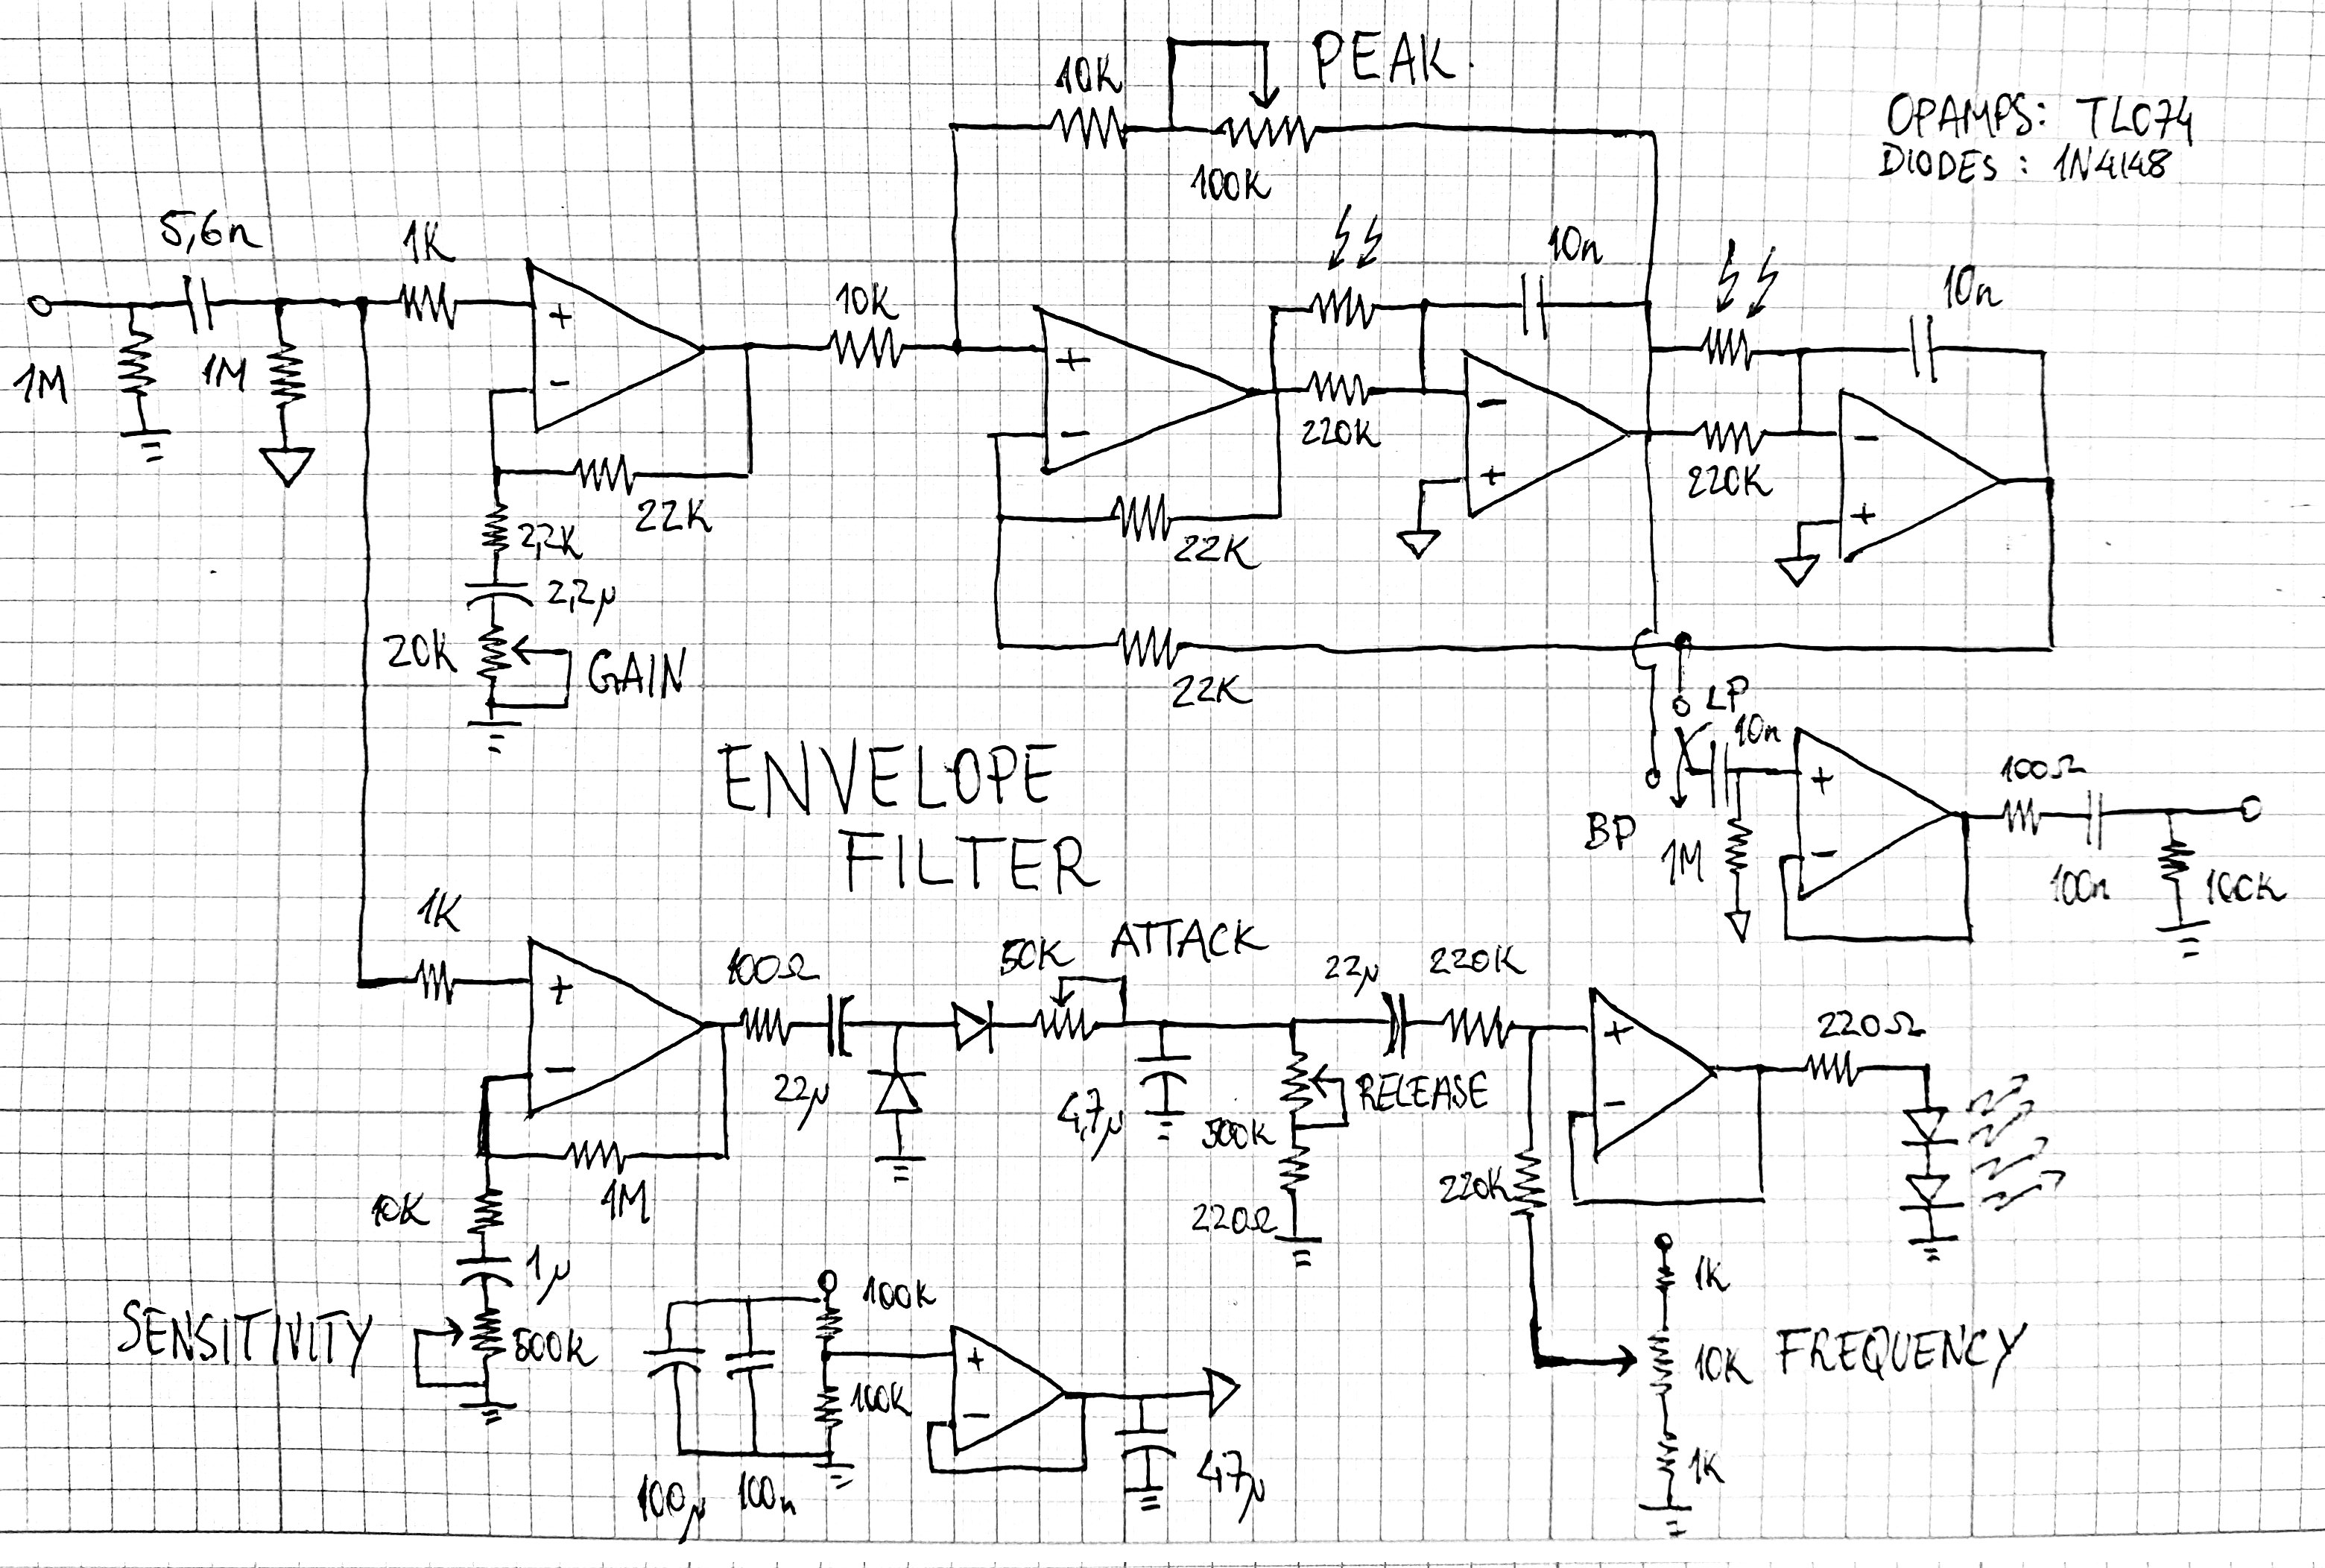 PEAK.
10K
100K
OPAMPS: TL074
DIODES: 1N4148
5,6n
1K
10K
10n
10n
1M
1M
+
-
+
-
-
+
-
+
220K
220K
22K
22K
2,2K
2,2µ
20K
GAIN
22K
LP
10n
BP
1M
+
-
100Ω
100n
100K
ENVELOPE
FILTER
1K
+
-
100Ω
22µ
50K
ATTACK
4,7µ
22µ
220K
RELEASE
500K
220Ω
220K
+
-
220Ω
1M
10K
1µ
SENSITIVITY
500K
100K
100K
+
-
100µ
100n
47µ
1K
10K
FREQUENCY
1K